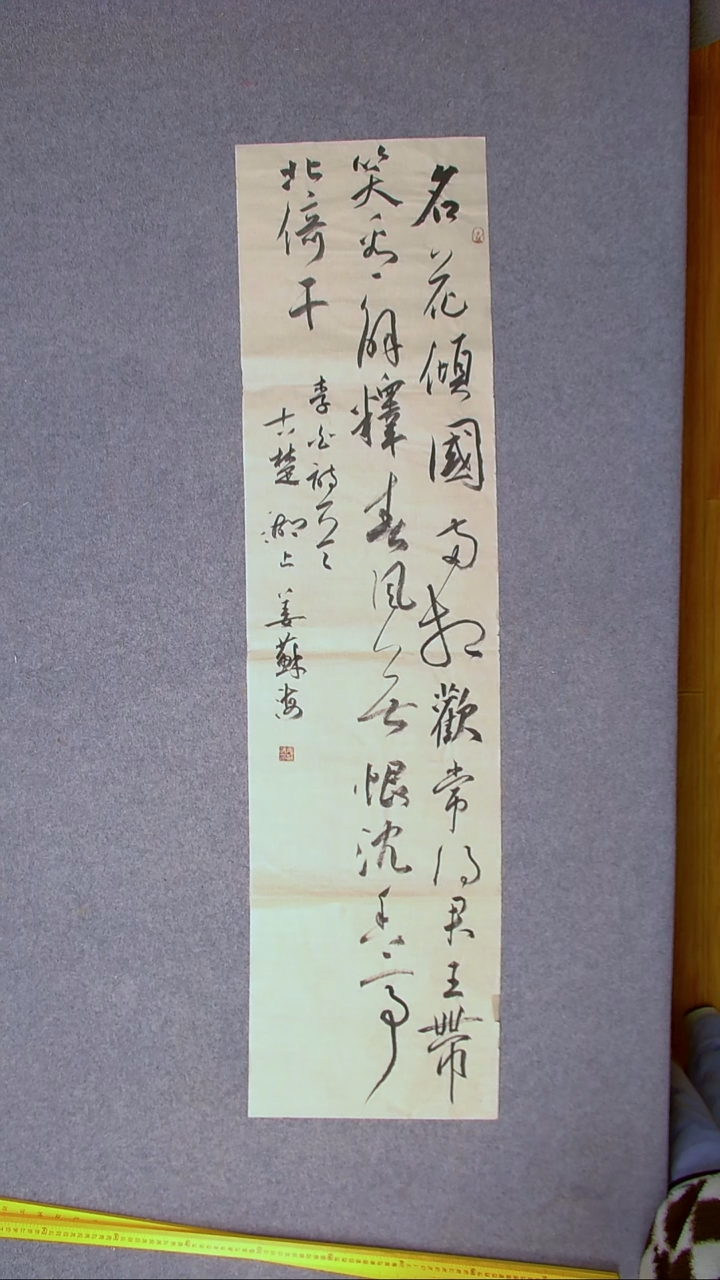 名花傾國兩相歡常得君王帶
笑看解釋春風無恨沈香亭
北倚干
李白詩一首
楚湖上姜蘇